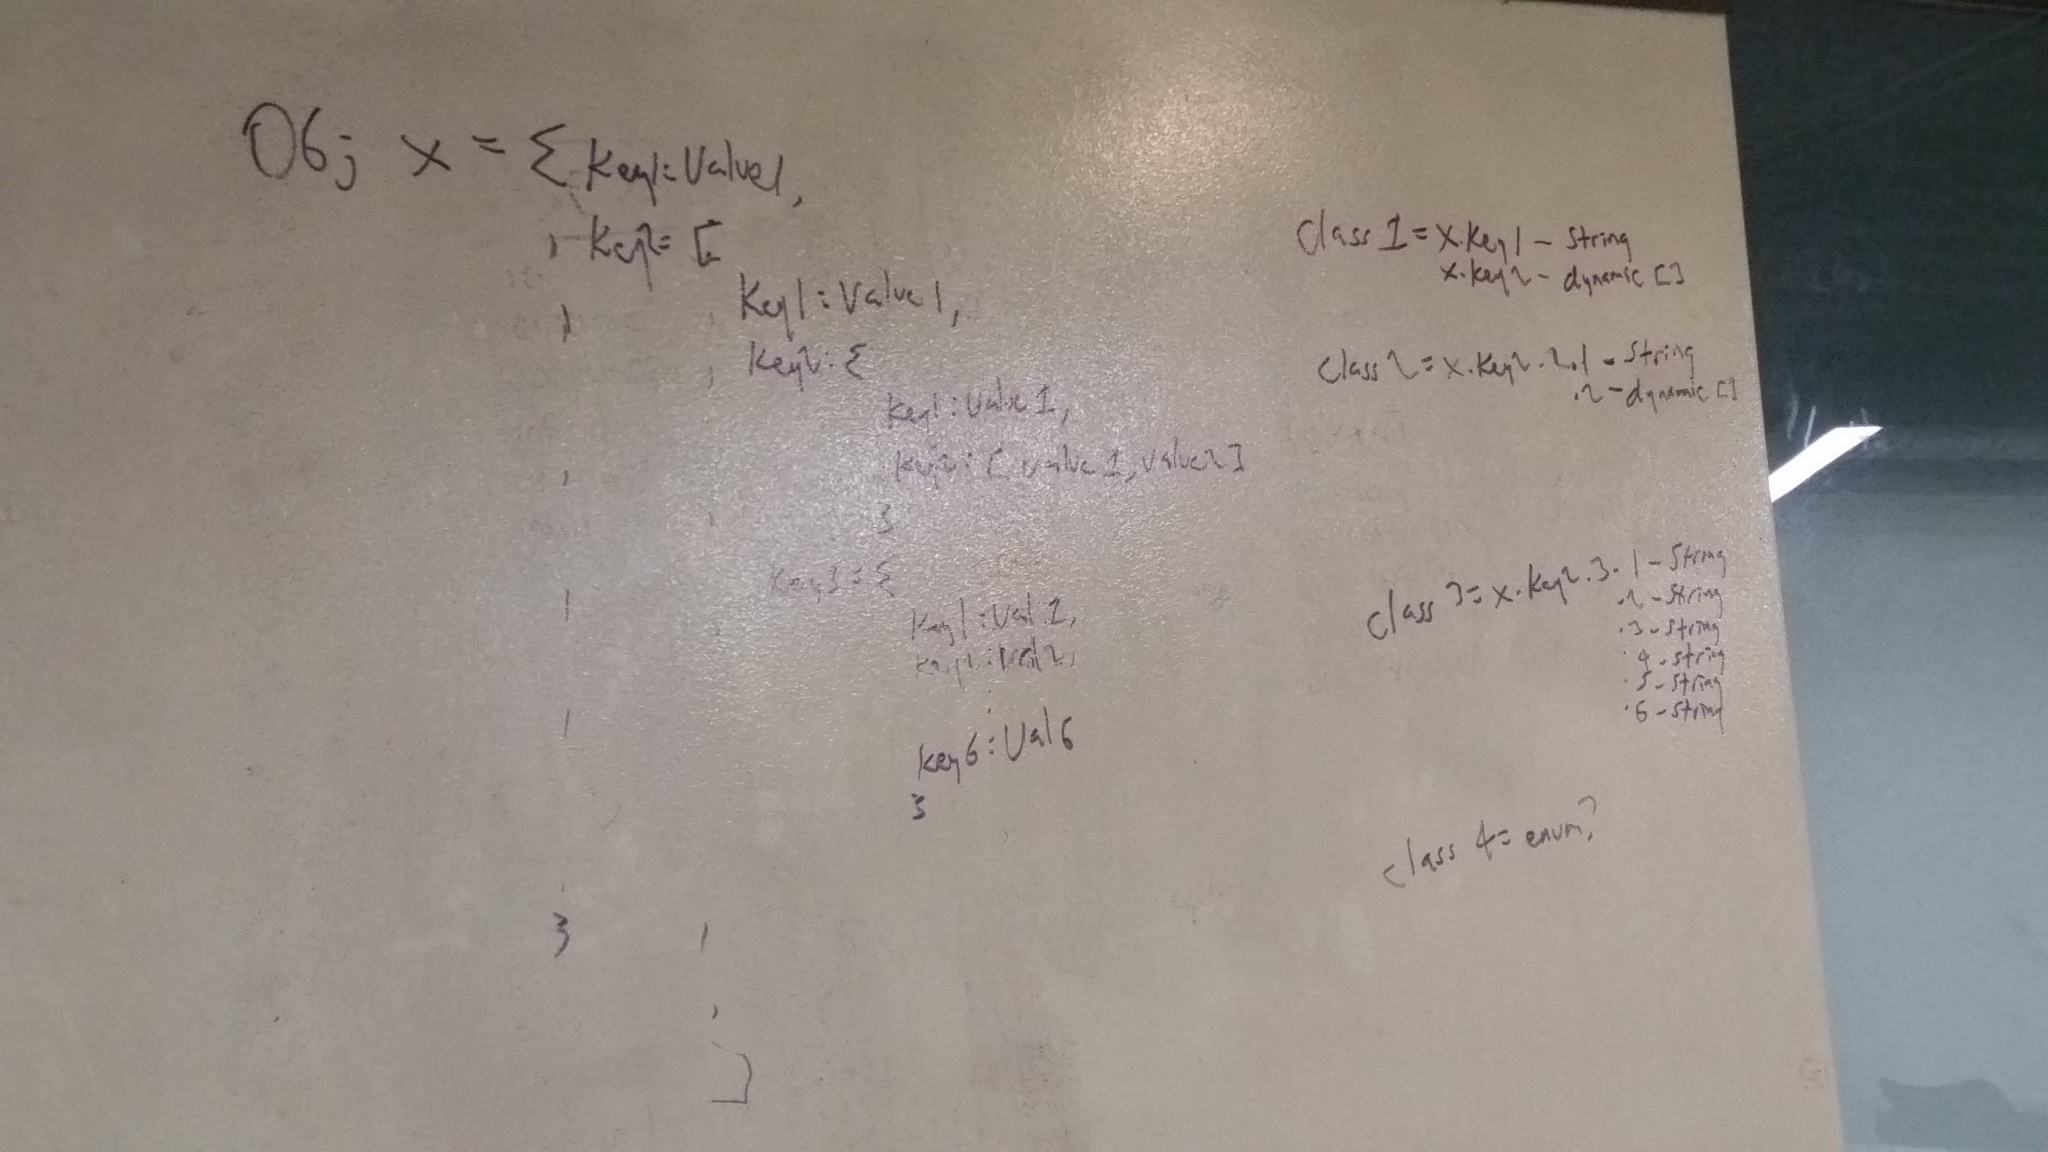 Obj x = { Key1: Value1,
, Key2= [
Key1: Value1,
Key2: {
Key1: Value 1,
Key2: [ value 1, value2 ]
}
Key3 = {
Key1: Val 1,
Key2: Val2,
:
Key6: Val6
}
}
]
Class 1 = x.Key1 - String
x.Key2 - dynamic []
Class 2 = x.Key2.2.1 - String
.2 - dynamic []
class 3 = x.Key2.3.1 - String
.2 - String
.3 - String
.4 - String
.5 - String
.6 - String
class 4 = enum?